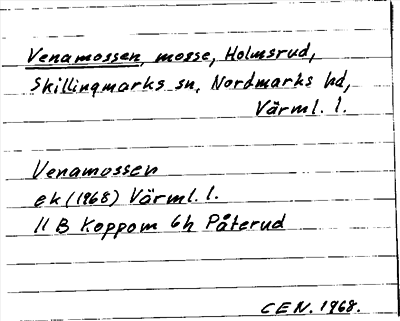 Venamossen, mosse, Holmsrud,
Skillingmarks sn, Nordmarks hd,
Värml. l.
Venamossen
ek (1968) Värml. l.
11 B Koppom 6h Påterud
CEN. 1968.